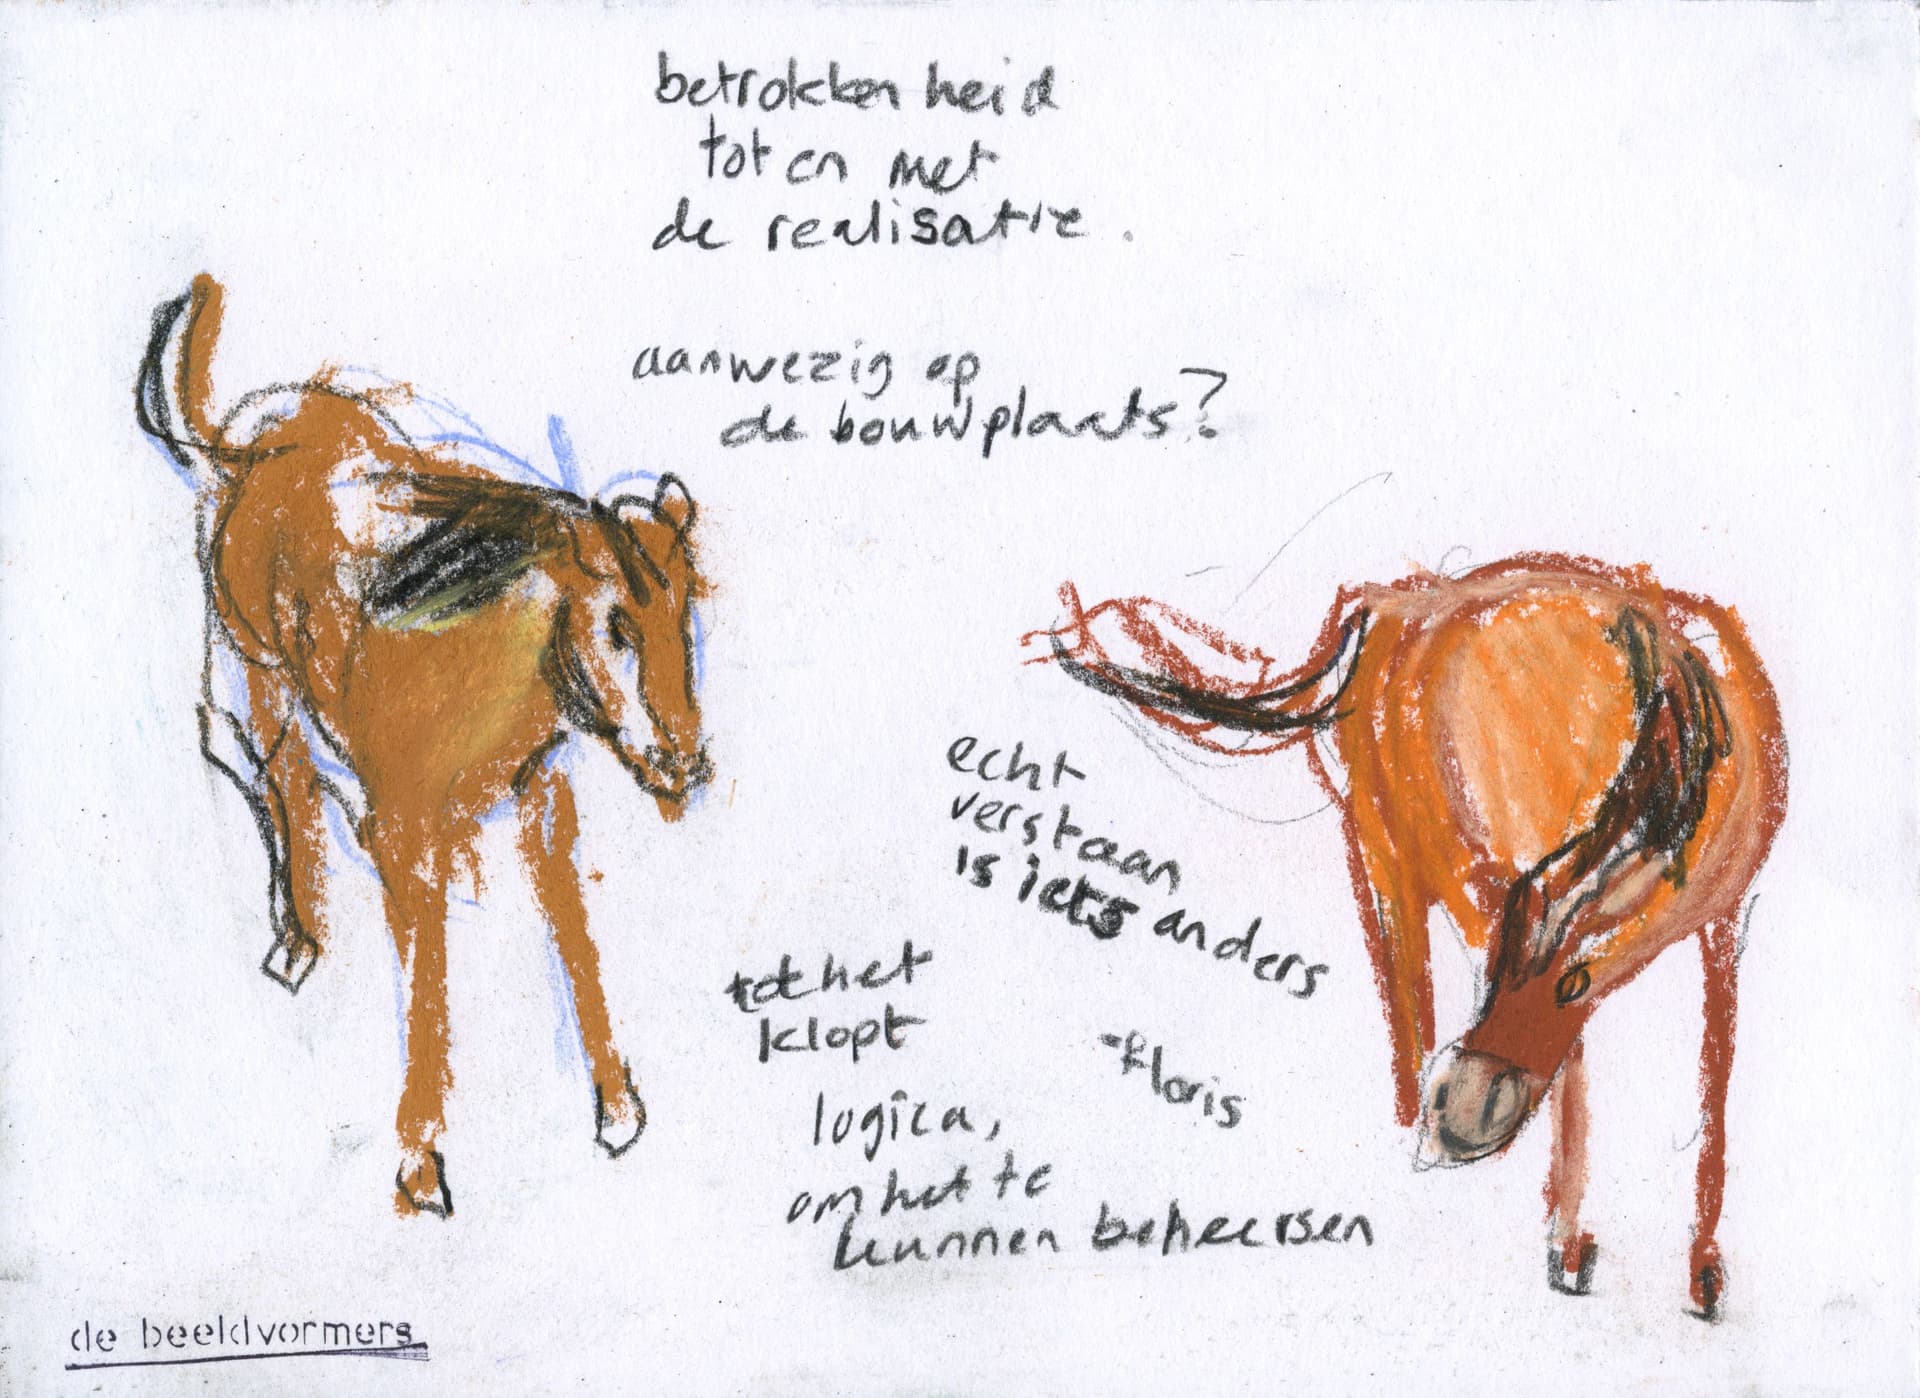 betrokkenheid
tot en met
de realisatie.
aanwezig op
de bouwplaats?
echt
verstaan
is iets anders
-floris
tot het
klopt
logica,
om het te
kunnen beheersen
de beeldvormers